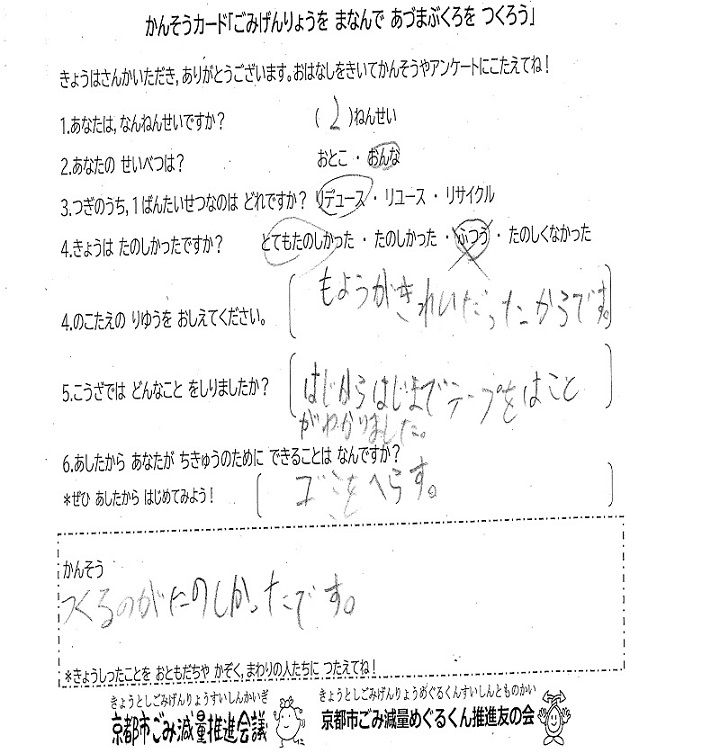 かんそうカード「ごみげんりょうを まなんで あづまぶくろを つくろう」
きょうはさんかいただき,ありがとうございます。おはなしをきいてかんそうやアンケートにこたえてね！
1.あなたは,なんねんせいですか？ (2)ねんせい
2.あなたの せいべつは？ おとこ ・ おんな
3.つぎのうち,1ばんたいせつなのは どれですか？ リデュース ・ リユース ・ リサイクル
4.きょうは たのしかったですか？ とてもたのしかった ・ たのしかった ・ ふつう ・ たのしくなかった
もようがきれいだったからです。
4.のこたえの りゆうを おしえてください。
5.こうざでは どんなこと をしりましたか？
はじからはじまでテープをはこと
がわかりました。
6.あしたから あなたが ちきゅうのために できることは なんですか？
*ぜひ あしたから はじめてみよう！
ゴことをへらす。
かんそう
つくるのがたのしかったです。
*きょうしったことを おともだちや かぞく,まわりの人たちに つたえてね！
きょうとしごみげんりょうすいしんかいぎ きょうとしごみげんりょうめぐるくんすいしんとものかい
京都市ごみ減量推進会議 京都市ごみ減量めぐるくん推進友の会